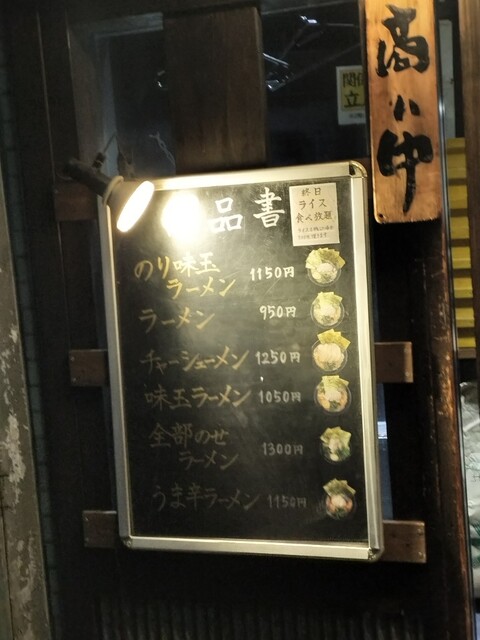 高い中
関係
立
品書
終日
ライス
食べ放題
のり味玉
ラーメン 1150円
ラーメン 950円
チャーシューメン 1250円
味玉ラーメン 1050円
全部のせ
ラーメン 1300円
うま辛ラーメン 1150円